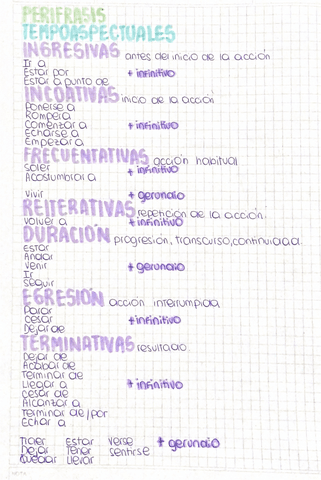 PERIFRASIS
TEMPOASPECTUALES
INGRESIVAS antes del inicio de la acción
Ir a
Estar por + infinitivo
Estar a punto de
INCOATIVAS inicio de la acción
Ponerse a
Romper a
Comenzar a + infinitivo
Echarse a
Empezar a
FRECUENTATIVAS acción habitual
Soler + infinitivo
Acostumbrar a
Vivir + gerundio
REITERATIVAS repetición de la acción.
Volver a + infinitivo
DURACIÓN progresión, transcurso, continuidad.
Estar
Andar
Venir + gerundio
Ir
Seguir
EGRESIÓN acción interrumpida
Parar
Cesar + infinitivo
Dejar de
TERMINATIVAS resultado
Dejar de
Acabar de
Terminar de
Llegar a + infinitivo
Cesar de
Alcanzar a
Terminar de/por
Echar a
Traer Estar Verse + gerundio
Dejar Tener Sentirse
Quedar Llevar